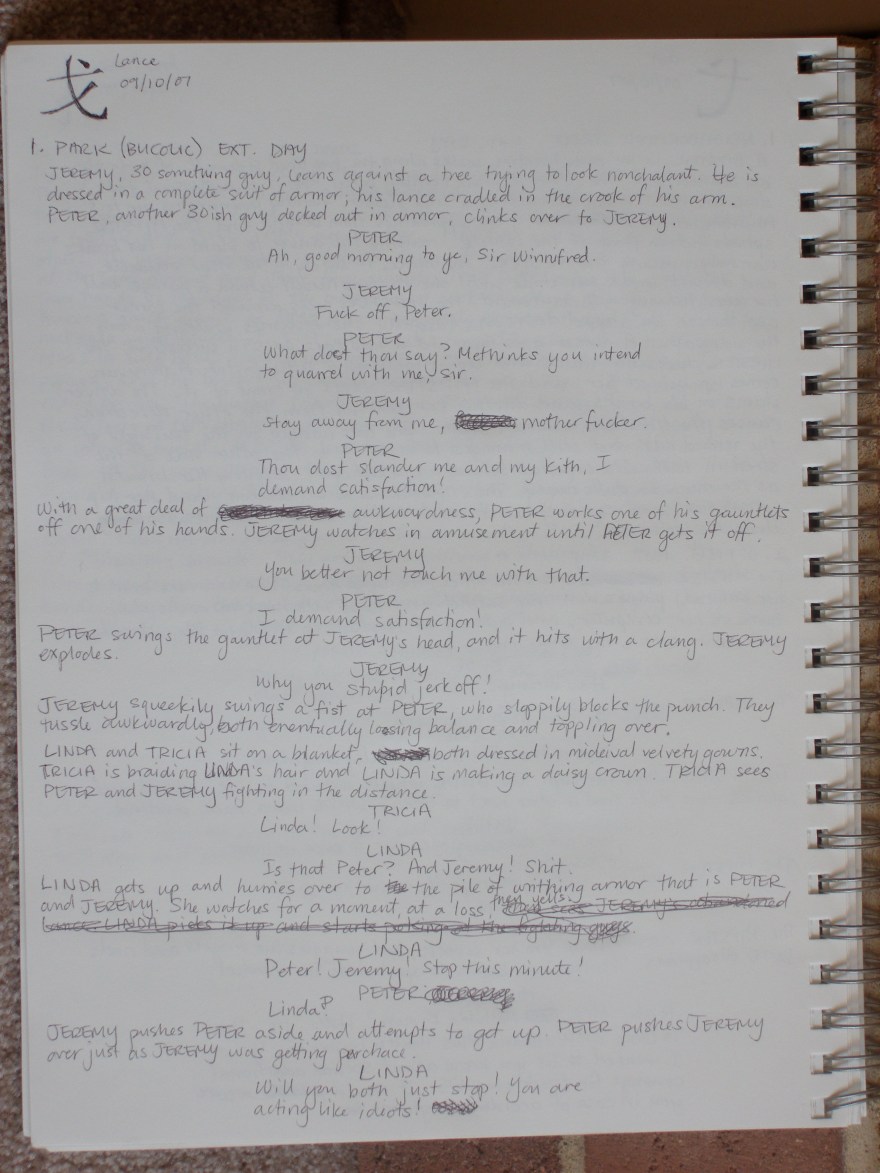 戈
Lance
09/10/07
1. PARK (BUCOLIC) EXT. DAY
JEREMY, 30 something guy, leans against a tree trying to look nonchalant. He is
dressed in a complete suit of armor, his lance cradled in the crook of his arm.
PETER, another 30ish guy decked out in armor, clinks over to JEREMY.
PETER
Ah, good morning to ye, Sir Winnifred.
JEREMY
Fuck off, Peter.
PETER
What dost thou say? Methinks you intend
to quarrel with me, sir.
JEREMY
Stay away from me, mother fucker.
PETER
Thou dost slander me and my kith, I
demand satisfaction!
With a great deal of awkwardness, PETER works one of his gauntlets
off one of his hands. JEREMY watches in amusement until PETER gets it off.
JEREMY
You better not touch me with that.
PETER
I demand satisfaction!
PETER swings the gauntlet at JEREMY's head, and it hits with a clang. JEREMY
explodes.
JEREMY
Why you stupid jerk off!
JEREMY squeekily swings a fist at PETER, who sloppily blocks the punch. They
tussle awkwardly, both eventually loosing balance and toppling over.
LINDA and TRICIA sit on a blanket, both dressed in mideival velvety gowns.
TRICIA is braiding LINDA's hair and LINDA is making a daisy crown. TRICIA sees
PETER and JEREMY fighting in the distance.
TRICIA
Linda! Look!
LINDA
Is that Peter? And Jeremy! Shit.
LINDA gets up and hurries over to the pile of writhing armor that is PETER
and JEREMY. She watches for a moment, at a loss, then yells. JEREMY's abandoned
lance. LINDA picks it up and starts poking at the fighting guys.
LINDA
Peter! Jeremy! Stop this minute!
PETER
Linda?
JEREMY pushes PETER aside and attempts to get up. PETER pushes JEREMY
over just as JEREMY was getting perchace.
LINDA
Will you both just stop! You are
acting like idiots!